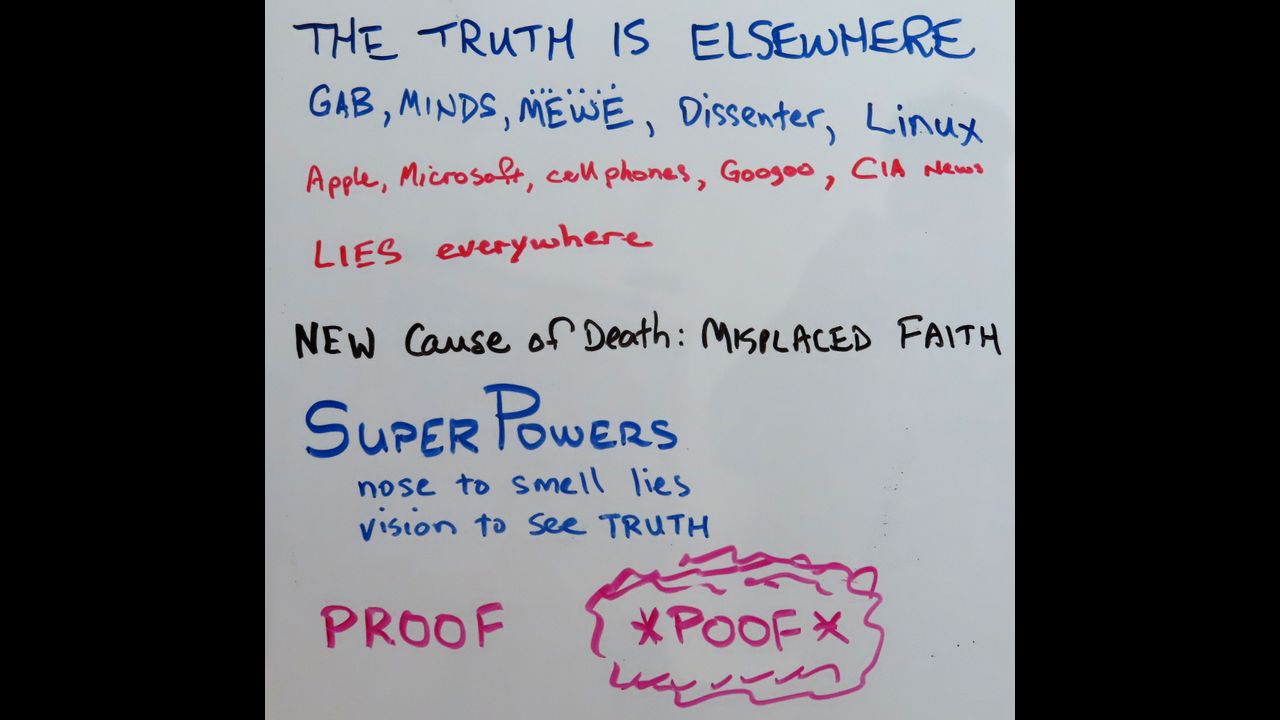 THE TRUTH IS ELSEWHERE
GAB, MINDS, MEWE, Dissenter, Linux
Apple, Microsoft, cell phones, Googoo, CIA News
LIES everywhere
NEW Cause of Death: MISPLACED FAITH
SUPER POWERS
nose to smell lies
vision to see TRUTH
PROOF *POOF*